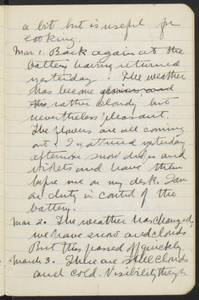 a bit but is useful for
looking.
Mar. 1. Back again at the
battery having returned
yesterday. The weather
has become
rather cloudy but
nevertheless pleasant.
The flowers are all coming
out. I gathered yesterday
afternoon snow drops and
violets and have them
before me on my desk. I am
on duty in control of the
battery.
Mar 2. The weather has changed,
we have snow and clouds.
But this passed off quickly.
March 3. There are still clouds
and cold. Visibility though